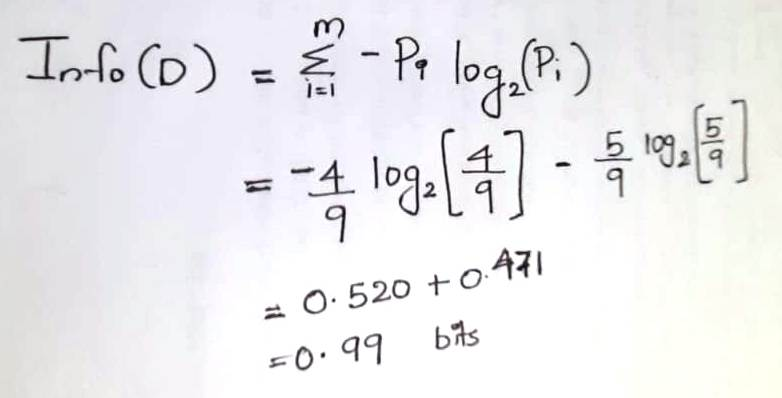 Info(D) = Σ_{i=1}^{m} - P_i log₂(P_i)
= -4/9 log₂[4/9] - 5/9 log₂[5/9]
= 0.520 + 0.471
= 0.99 bits